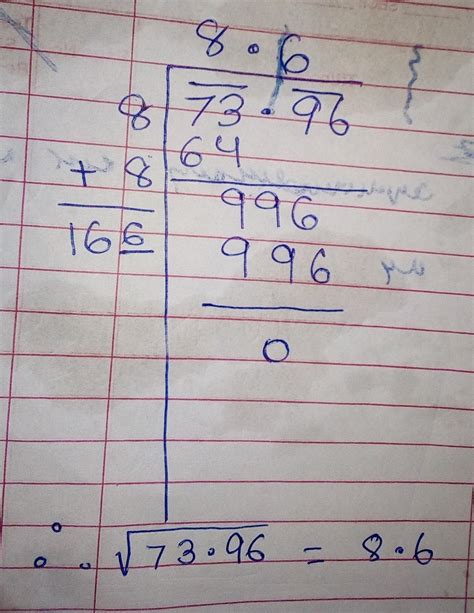 8.6
8 73.96
64
+ 8
996
166
996
0
∴ √73.96 = 8.6